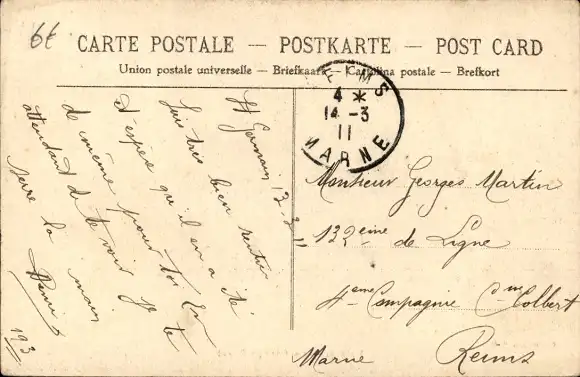 6f
CARTE POSTALE — POSTKARTE — POST CARD
Union postale universelle — Briefkaart — Cartolina postale — Brefkort
FIMES
4 *
14 - 3
11
MARNE
St Germain 13-3-11
Suis très bien rentré
J'espère qu'il en a été
de même pour toi En
attendant de te voir Je te
serre la main
193
Monsieur Georges Martin
132eme de Ligne
4eme Compagnie Cne Colbert
Reims
Marne